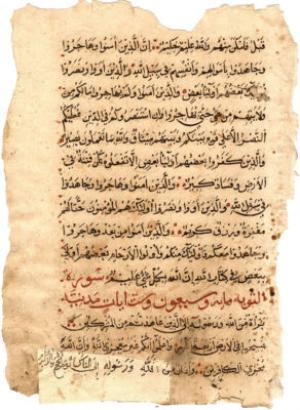 قبل فامكن منهم والله عليم حكيم ان الذين امنوا وهاجروا
وجاهدوا باموالهم وانفسهم في سبيل الله والذين اووا ونصروا
اوليك بعضهم اوليا بعض والذين امنوا ولم يهاجروا ما لكم من
ولايتهم من شي حتى يهاجروا وان استنصروكم في الدين فعليكم
النصر الا على قوم بينكم وبينهم ميثاق والله بما تعملون بصير
والذين كفروا بعضهم اوليا بعض الا تفعلوه تكن فتنة في
الارض وفساد كبير والذين امنوا وهاجروا وجاهدوا
في سبيل الله والذين اووا ونصروا اوليك هم المومنون حقا لهم
مغفرة ورزق كريم والذين امنوا من بعد وهاجروا
وجاهدوا معكم فاوليك منكم واولوا الارحام بعضهم اولى
ببعض في كتاب الله ان الله بكل شي عليم سورة
التوبة ماية وسبعون وست ايات مدنية
براة من الله ورسوله الى الذين عاهدتم من المشركين
فسيحوا في الارض اربعة اشهر واعلموا انكم غير معجزي الله وان الله
مخزي الكافرين واذان من الله ورسوله الى الناس يوم الحج الاكبر